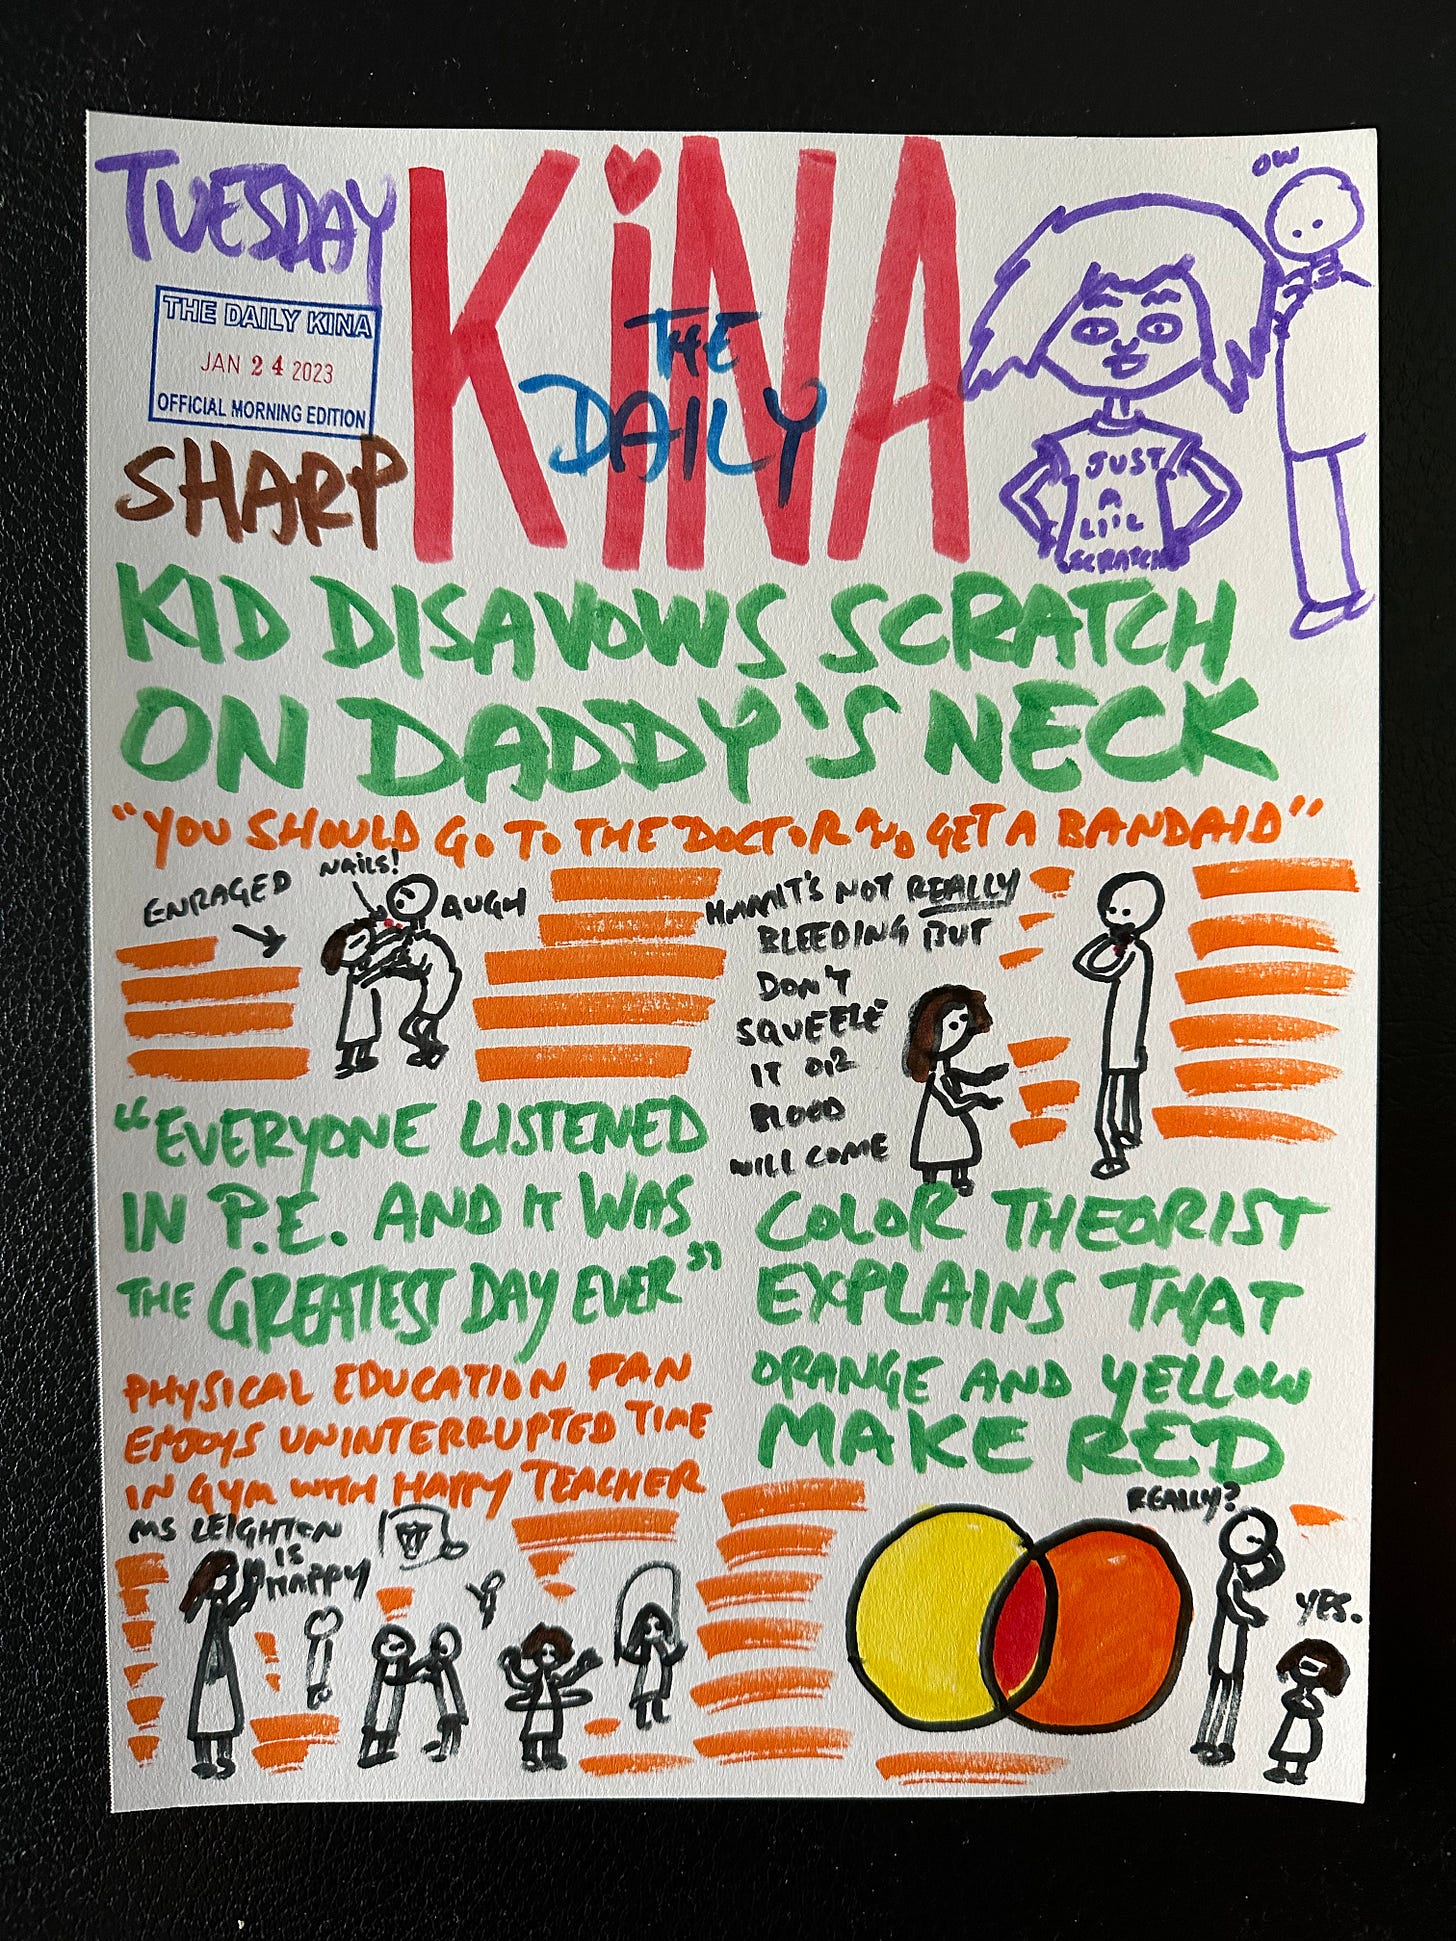 TUESDAY
THE DAILY KINA
JAN 24 2023
OFFICIAL MORNING EDITION
SHARP
KiNA
THE
DAILY
OW
JUST
A
LI'L
SCRATCH
KID DISAVOWS SCRATCH
ON DADDY'S NECK
"YOU SHOULD GO TO THE DOCTOR AND GET A BANDAID"
ENRAGED
NAILS!
AUGH
HMM IT'S NOT REALLY
BLEEDING BUT
DON'T
SQUEEZE
IT OR
BLOOD
WILL COME
"EVERYONE LISTENED
IN P.E. AND IT WAS
THE GREATEST DAY EVER"
PHYSICAL EDUCATION FAN
ENJOYS UNINTERRUPTED TIME
IN GYM WITH HAPPY TEACHER
MS LEIGHTON
IS
HAPPY
COLOR THEORIST
EXPLAINS THAT
ORANGE AND YELLOW
MAKE RED
REALLY?
YES.